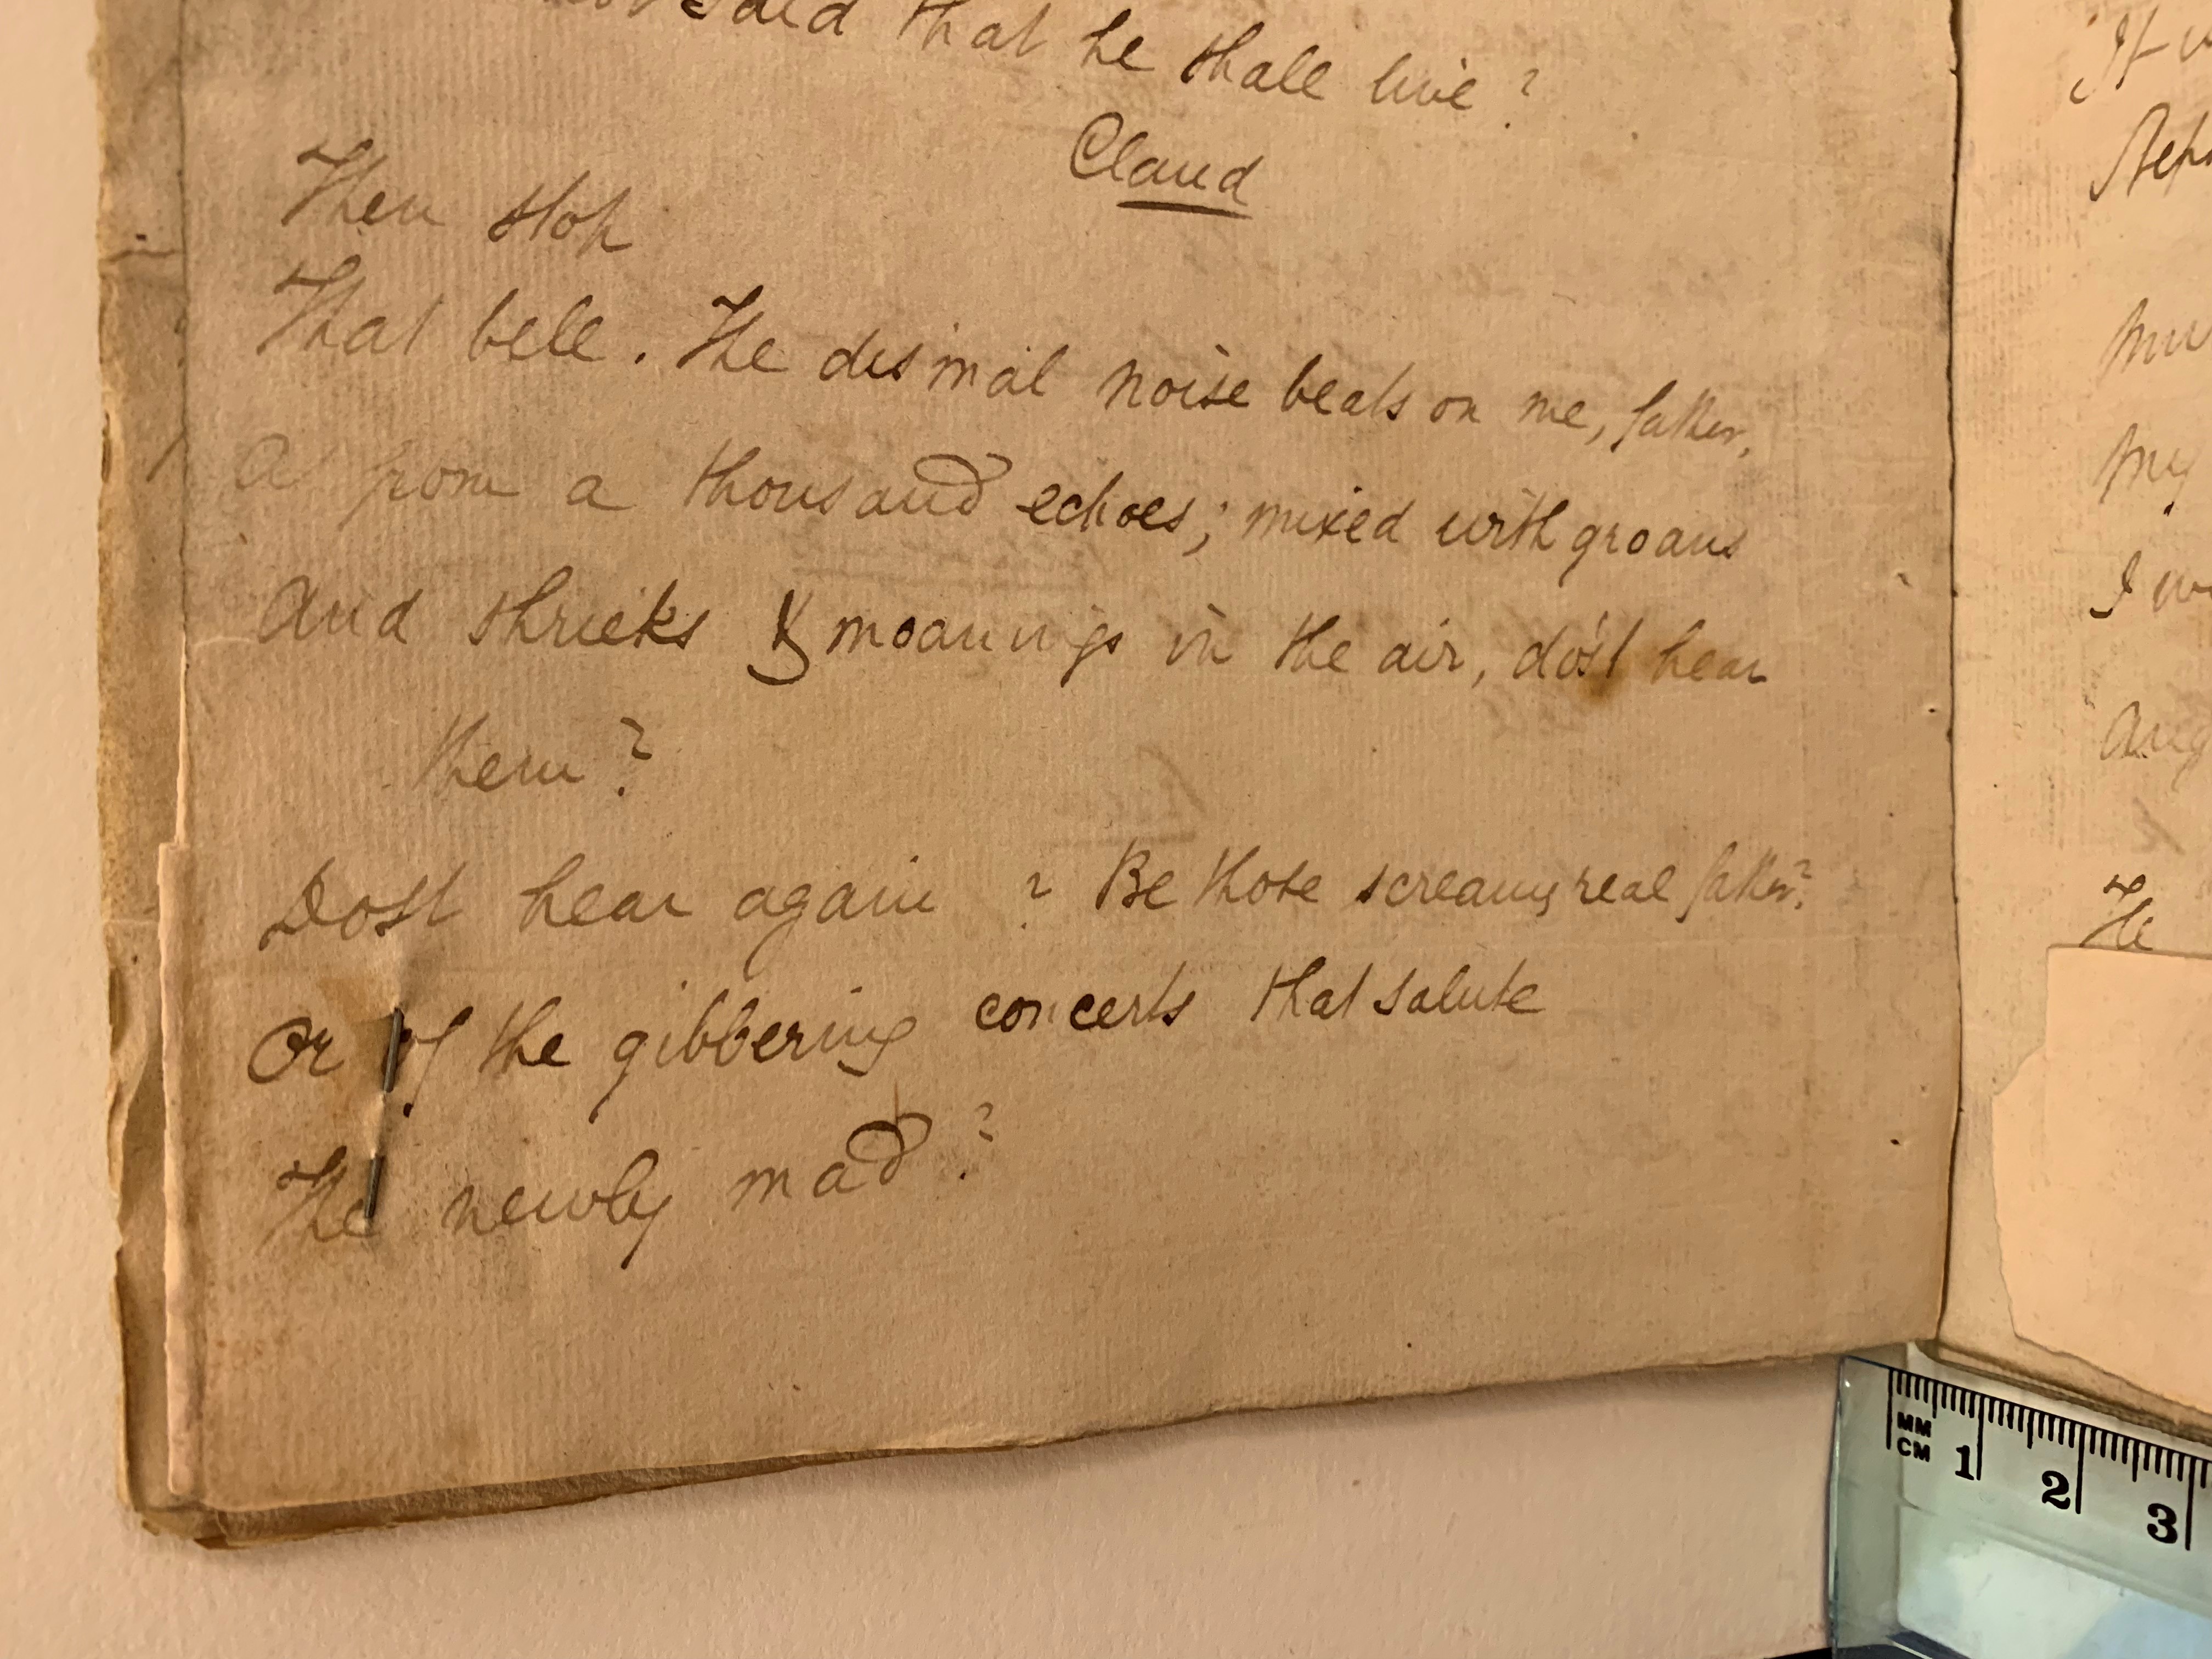 said that he shall live?
Claud
Then stop
That bell. The dismal noise beats on me, father,
As from a thousand echoes; mixed with groans
And shrieks & moanings in the air, do'st hear
them?
Dost hear again? Be those screams real father?
Or of the gibbering concerts that salute
The newly mad?
my
The
MM
CM 1 2 3